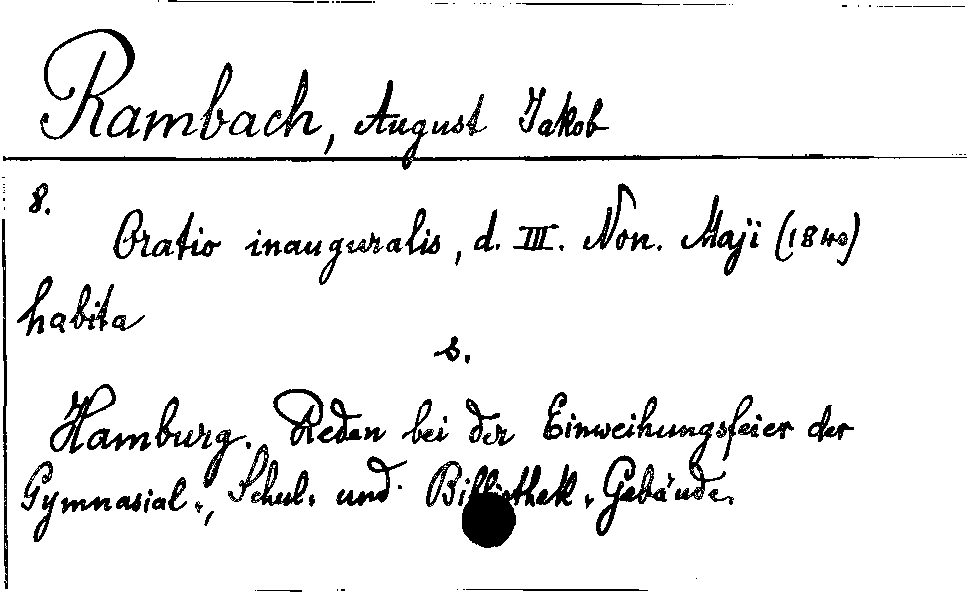 Rambach, August Jakob
8.
Oratio inauguralis, d. III. Non. Maji (1840)
habita
s.
Hamburg. Reden bei der Einweihungsfeier der
Gymnasial-, Schul- und Bibliothek-Gebäude.